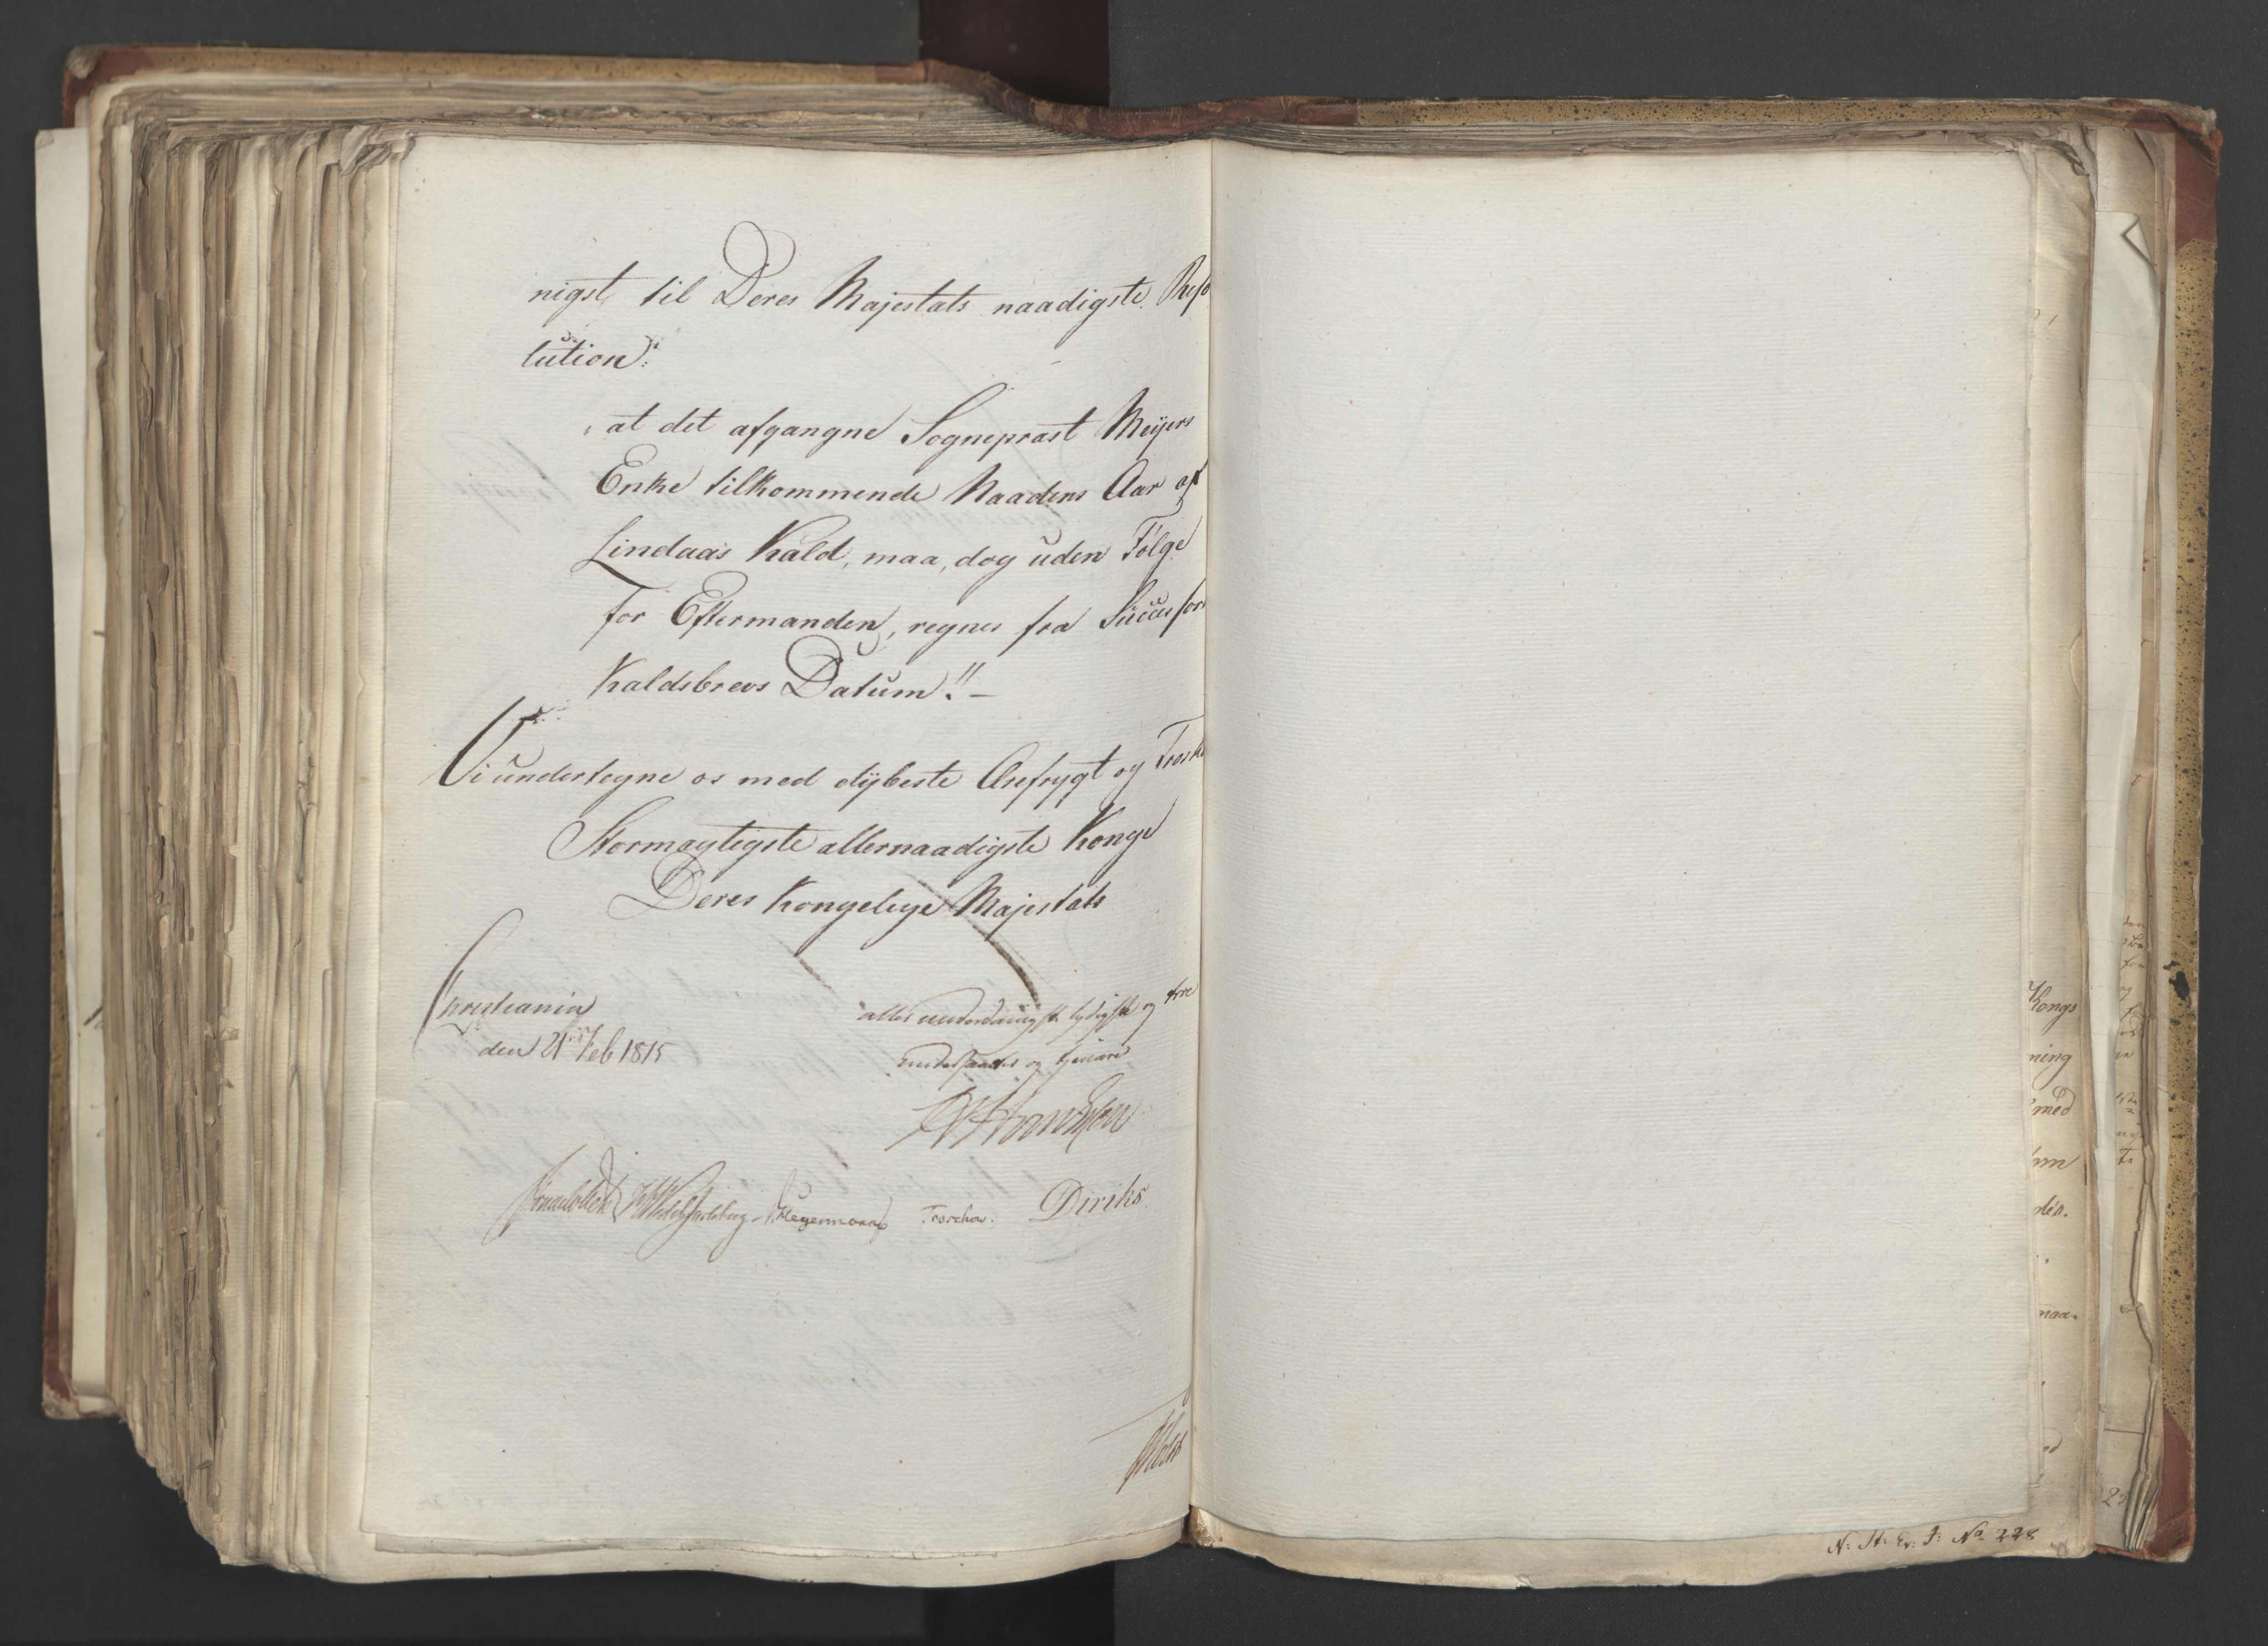 nigst til Deres Majestats naadigste Reso
lution:
"at det afgangne Sogneprast Meyers
Enke tilkommende Naadens Aar af
Lindaas Kald, maa, dog uden Følge
for Eftermanden, regnes fra Successors
Kaldsbrevs Datum!" —
Vi undertegne os med dybeste Ærefrygt og Troskab
Stormægtigste allernaadigste Konge
Deres Kongelige Majestats
Christiania
den 21de Feb 1815
allerunderdanigste lydigste og troe
undersaatter og tjenere
Sommerfeldt Wedel Jarlsberg Hegermann Treschow. Diriks
Holst
Kongs
ning
med
naa-
N: St: Ex: J: No 228